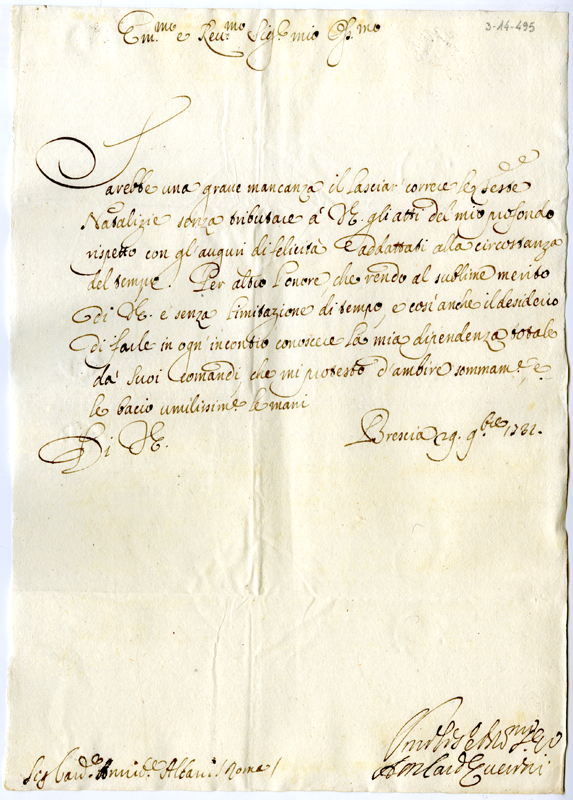 3-14-495
Em.mo e Reu.mo Sig.r mio Oss.mo
Sarebbe una graue mancanza il lasciar correre le Feste
Natalizie senza tributare à VE. gli atti del mio profondo
rispetto con gl'auguri di felicità addattati alla circostanza
del tempo. Per altro l'onore che rendo al sublime merito
di VE. è senza limitazione di tempo, e così anche il desiderio
di farle in ogn'incontro conoscere la mia dipendenza totale
da' Suoi comandi che mi protesto d'ambire sommam.e, e
le bacio umilissim.e le mani
Di VE.
Brescia 29. 9.bre 1731.
Sig. Card. Annib.e Albani / Roma /